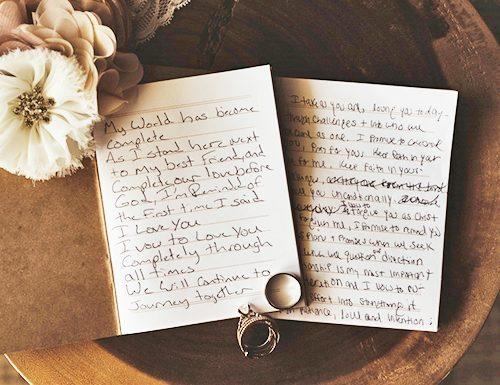 My World has become
complete
As I stand here next
to my best friend, and
Complete our love before
God, I'm Remind of
the first time I said
I Love You
I vow to Love You
Completely through
all times
We Will Continue to
Journey together
I take as you are, loving you today
through challenges + into who we
as one. I promise to cherish
you, Pray for you, Keep Faith in your
for me, Keep Faith in your
you Unconditionally,
I vow to
forgive you as Christ
me, I promise to remind you
Plan + Promises when we seek
when we question direction
is my most important
and I vow to put
effort into
Patience, love and intention.